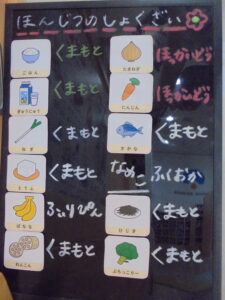 ほんじつのしょくざい
ごはん くまもと
たまねぎ ほっかいどう
ぎゅうにゅう くまもと
にんじん ほっかいどう
ねぎ くまもと
さかな くまもと
とうふ くまもと
なめこ ふくおか
ばなな ふぃりぴん
ひじき くまもと
れんこん くまもと
ぶろっこりー くまもと